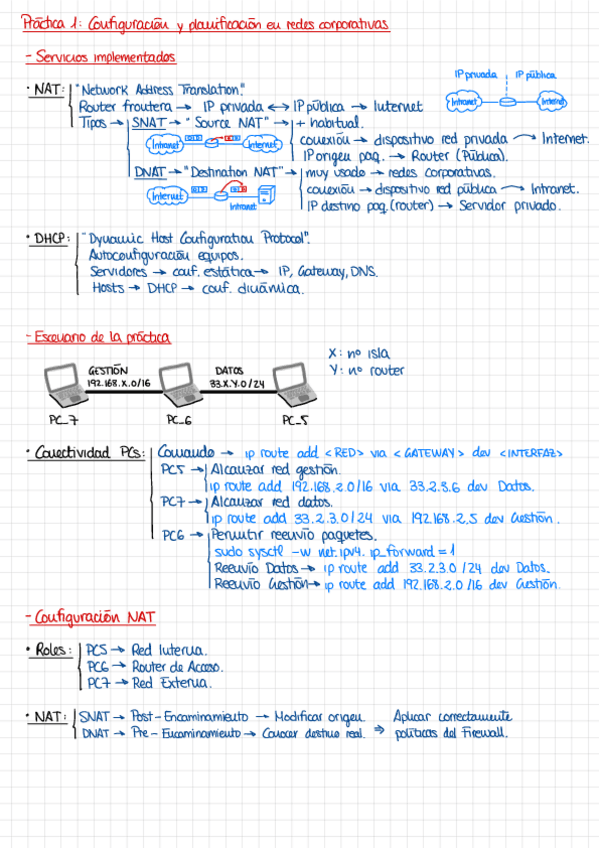 Práctica 1: Configuración y planificación en redes corporativas
- Servicios implementados
IP privada IP pública
Intranet Internet
· NAT: "Network Address Translation"
Router froutera → IP privada ↔ IP pública → Internet
Tipos → SNAT → "Source NAT" → + habitual.
Intranet Internet
conexión → dispositivo red privada → Internet.
IP origen paq. → Router (Pública).
DNAT → "Destination NAT" → muy usado → redes corporativas.
Internet Intranet
conexión → dispositivo red pública → Intranet.
IP destino paq. (router) → Servidor privado.
· DHCP: "Dynamic Host Configuration Protocol".
Autoconfiguración equipos.
Servidores → conf. estática → IP, Gateway, DNS.
Hosts → DHCP → conf. dinámica.
- Escenario de la práctica
X: nº isla
Y: nº router
GESTIÓN DATOS
192.168.X.0/16 33.X.Y.0/24
PC_7 PC_6 PC_5
· Conectividad PCs: Comando → ip route add <RED> via <GATEWAY> dev <INTERFAZ>
PC5 → Alcanzar red gestión.
ip route add 192.168.2.0/16 via 33.2.3.6 dev Datos.
PC7 → Alcanzar red datos.
ip route add 33.2.3.0/24 via 192.168.2.5 dev Gestión.
PC6 → Permitir reenvío paquetes.
sudo sysctl -w net.ipv4.ip_forward=1
Reenvío Datos → ip route add 33.2.3.0/24 dev Datos.
Reenvío Gestión → ip route add 192.168.2.0/16 dev Gestión.
- Configuración NAT
· Roles: PC5 → Red Interna.
PC6 → Router de Acceso.
PC7 → Red Externa.
· NAT: SNAT → Post-Encaminamiento → Modificar origen.
DNAT → Pre-Encaminamiento → Conocer destino real. ⇒ Aplicar correctamente
políticas del Firewall.